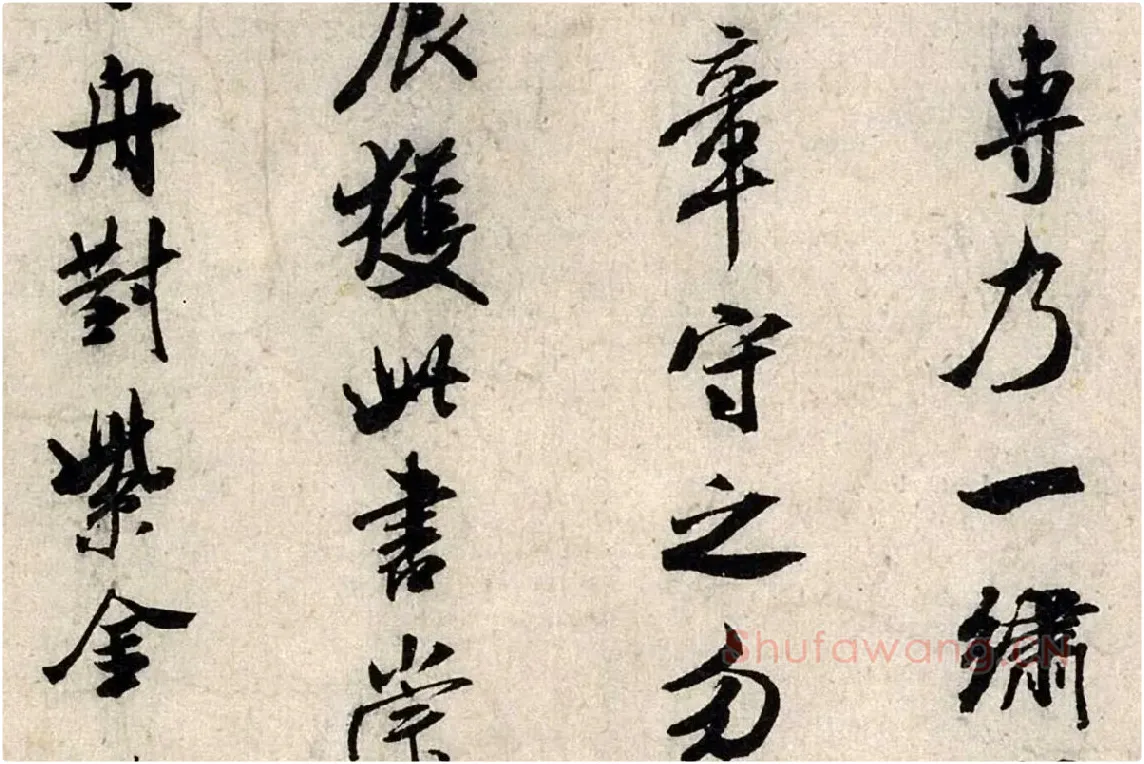 専乃一繡
章守之勿
辰獲此書崇
舟對紫金
Shufawang.CN